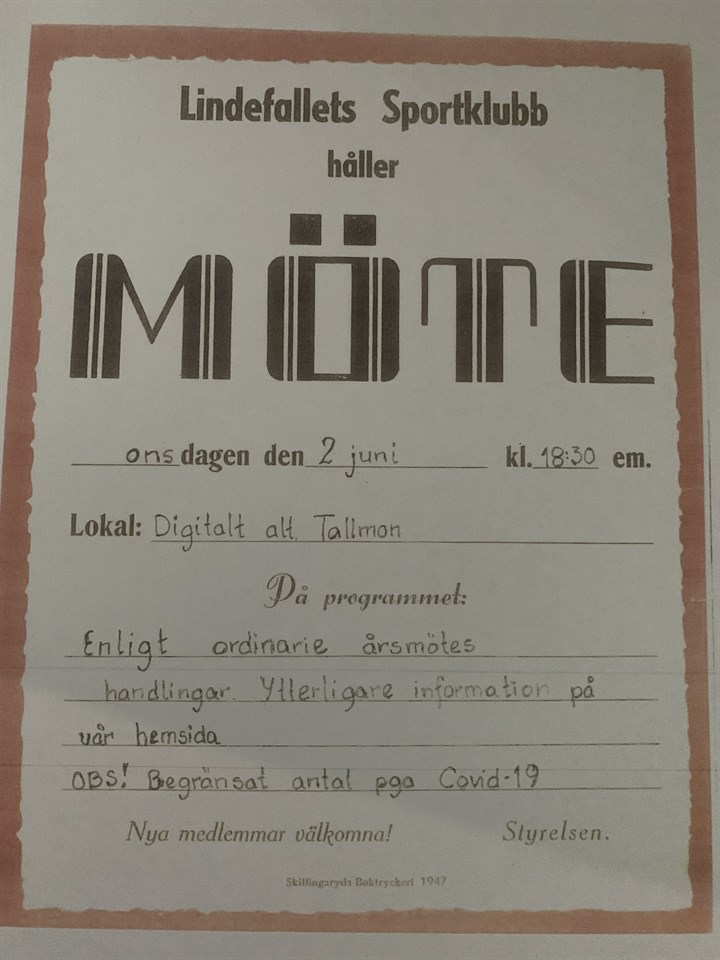 Lindefallets Sportklubb
håller
MÖTE
onsdagen den 2 juni kl. 18:30 em.
Lokal: Digitalt alt. Tallmon
På programmet:
Enligt ordinarie årsmötes
handlingar. Ytterligare information på
vår hemsida
OBS! Begränsat antal pga Covid-19
Nya medlemmar välkomna! Styrelsen.
Skillingaryds Boktryckeri 1947